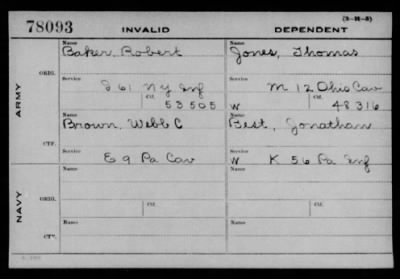 (3-H-5)
78093 INVALID DEPENDENT
Name Name
Baker, Robert Jones, Thomas
ORIG. Service Service
I 61 N Y Inf M 12 Ohio Cav
Ctf. Ctf.
53505 W 48316
ARMY
Name Name
Brown, Webb C Best, Jonathan
CTF. Service Service
E 9 Pa Cav W K 56 Pa Inf
Name Name
ORIG. Ctf. Ctf.
NAVY
Name Name
CTF.